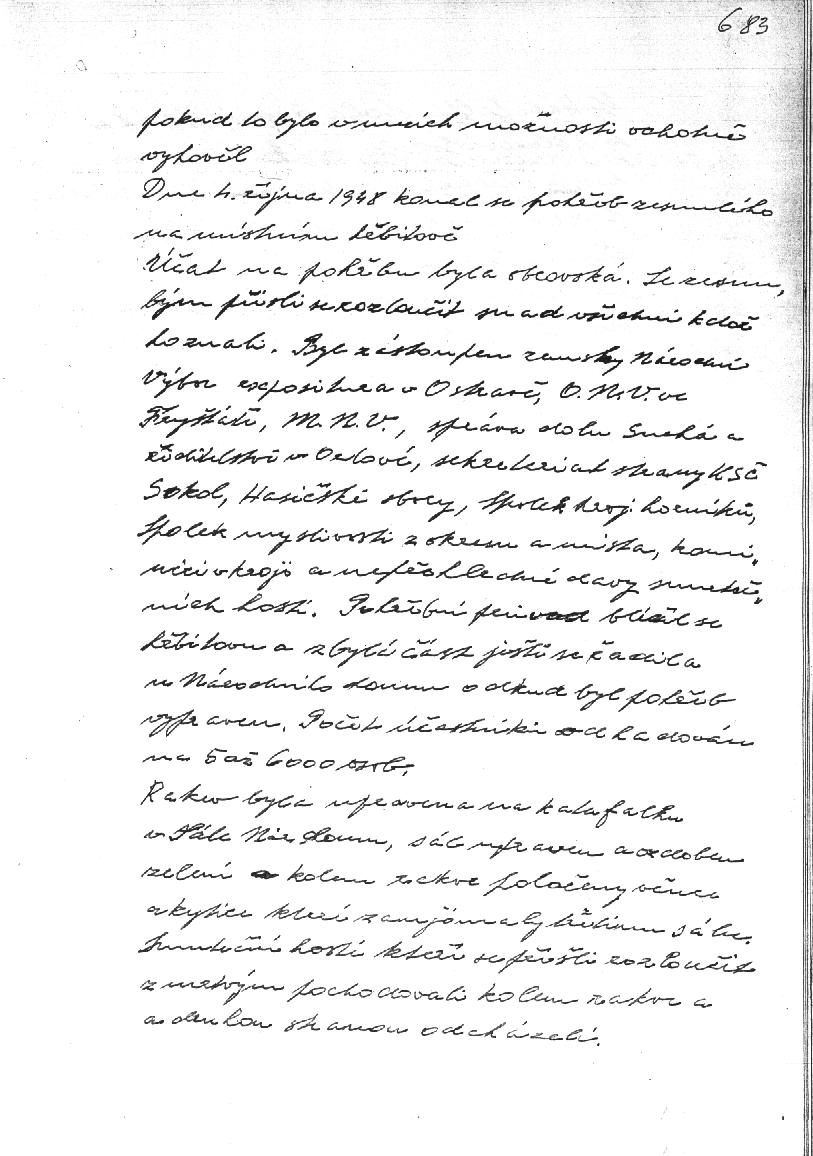 683
pokud to bylo v mezích možnosti ochotně
vyhověl
Dne 4. října 1948 konal se pohřeb zesnulého
na místním hřbitově
Účast na pohřbu byla obrovská. Se zesnu„
lým přišli se rozloučit snad všichni kdož
ho znali. Byl zástoupen zemský Národní
Výbor expositura v Ostravě, O.N.V. ve
Fryštátě, M.N.V., správa dolu Suchá a
ředitelství v Orlové, sekretariat strany KSČ
Sokol, Hasičské sbory, Spolek kroj. horníků,
Spolek myslivosti z okresu a místa, komi„
níci v kroji a nepřehledné davy smuteč„
ních hostí. Pohřební průvod blížil se
hřbitovu a zbylá část ještě se řadila
u Národního domu odkud byl pohřeb
vypraven. Počet účastníků odhadován
na 5 až 6000 osob.
Rakev byla upravena na katafalku
v Sále Nár. domu, sál upraven a ozdoben
zelení a kolem rakve položeny věnce
a kytice které zaujímaly třetinu sálu.
Smuteční hosti kteří se přišli rozloučit
z mrtvým pochodovali kolem rakve a
a druhou stranou odcházeli.